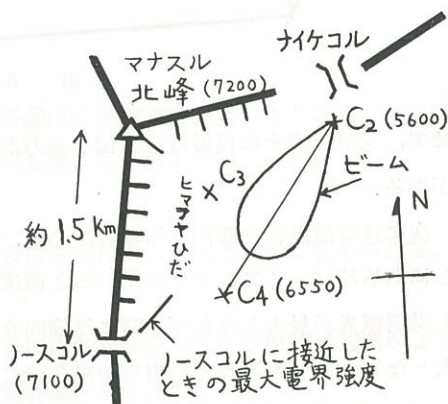 マナスル
北峰(7200)
ナイケコル
C2(5600)
ビーム
ヒマラヤひだ
C3
N
約1.5Km
C4(6550)
ノースコル
(7100)
ノースコルに接近した
ときの最大電界強度